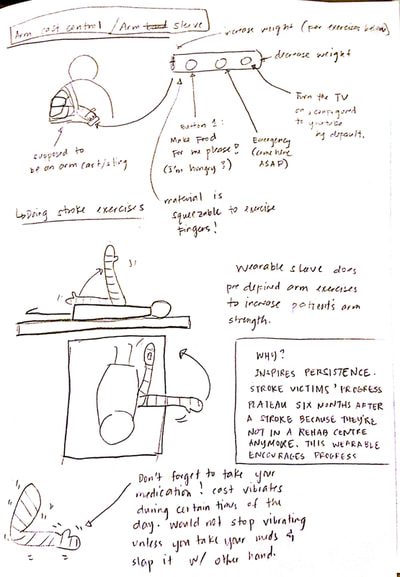 Arm cast control / Arm sleeve
increase weight (for exercises below)
decrease weight
Button 1:
Make Food
For me please!
(I'm hungry?)
Emergency
(come here
ASAP)
Turn the TV
on & configured
to youtube
by default.
supposed to
be an arm cast/sling
material is
squeezable to exercise
fingers!
Doing stroke exercises
Wearable sleeve does
pre defined arm exercises
to increase patient's arm
strength.
WHY?
INSPIRES PERSISTENCE.
STROKE VICTIMS' PROGRESS
PLATEAU SIX MONTHS AFTER
A STROKE BECAUSE THEY'RE
NOT IN A REHAB CENTRE
ANYMORE. THIS WEARABLE
ENCOURAGES PROGRESS
Don't forget to take your
medication! cast vibrates
during certain times of the
day. would not stop vibrating
unless you take your meds &
slap it w/ other hand.